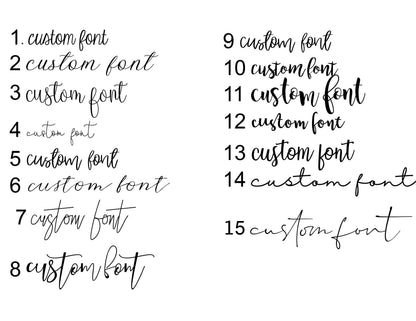 1. custom font
2 custom font
3 custom font
4 custom font
5 custom font
6 custom font
7 custom font
8 custom font
9 custom font
10 custom font
11 custom font
12 custom font
13 custom font
14 custom font
15 custom font